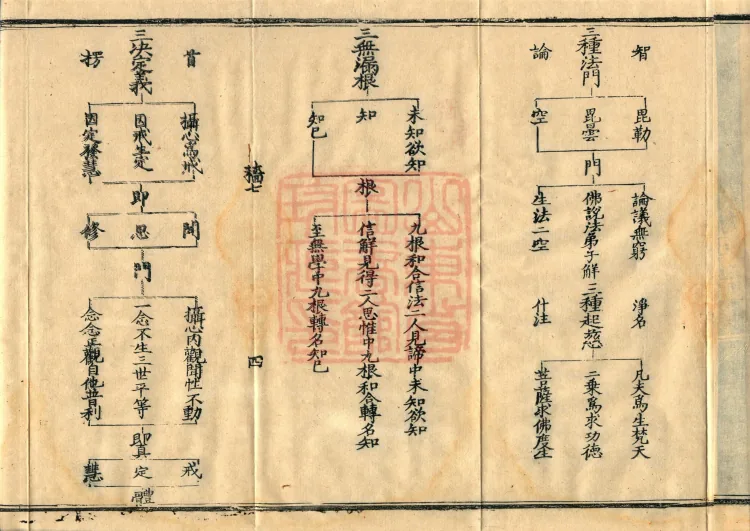 智論
三種法門
毘勒
毘曇
空
門
論議無窮
佛說法弟子解
生法二空
淨名什注
三種起慈
凡夫為生梵天
二乘為求功德
菩薩求佛度生
三無漏根
未知欲知
知
知已
根
九根和合信法二人見諦中未知欲知
信解見得二人思惟中九根和合轉名知
至無學中九根轉名知已
四
首楞
三決定義
攝心為戒
因戒生定
因定發慧
即
聞
思
修
門
攝心內觀聞性不動
一念不生三世平等
念念正觀自他並利
即真
戒
定
慧
體